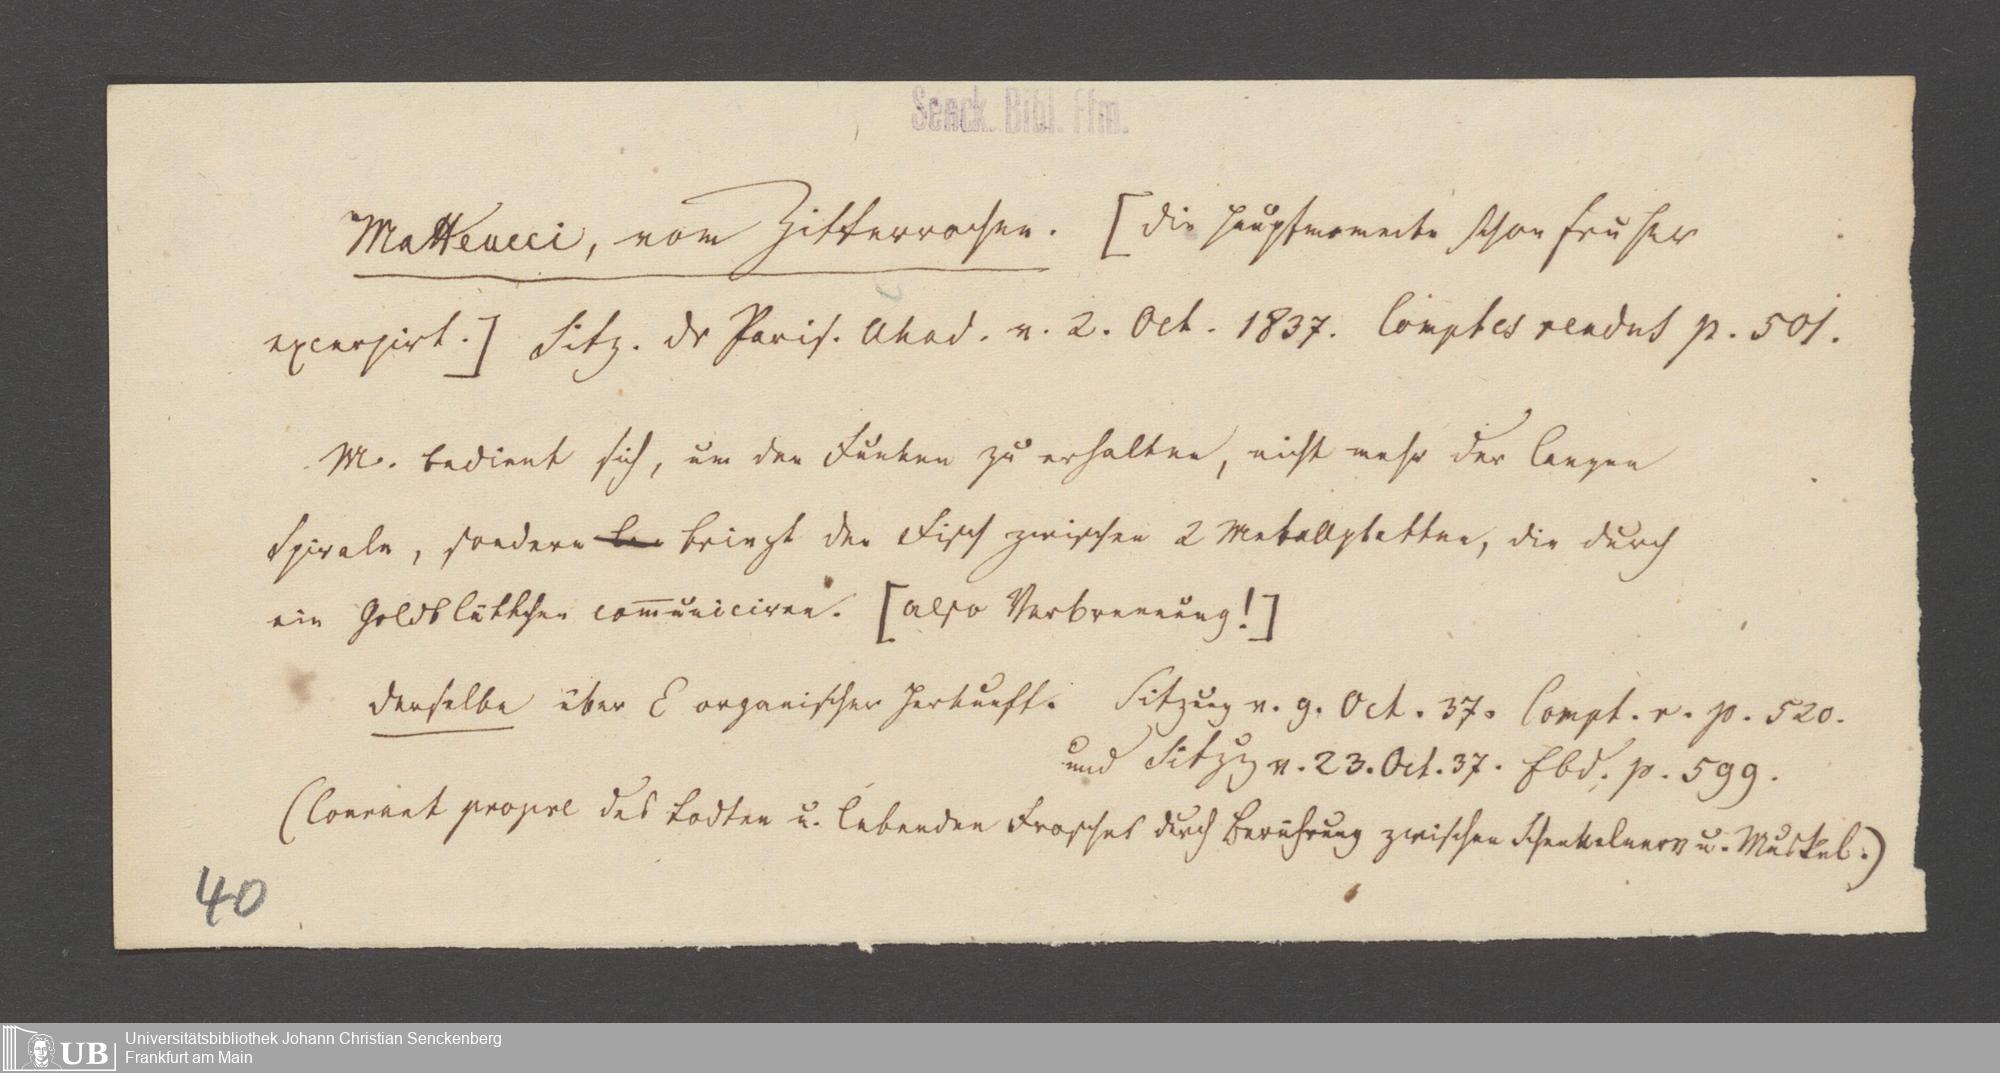 Senck. Bibl. Ffm.
Matteucci, vom Zitterrochen. [die Hauptmomente schon früher
excerpirt.] Sitz. dr Paris. Akad. v. 2. Oct. 1837. Comptes rendus p. 501.
M. bedient sich, um den Funken zu erhalten, nicht mehr der langen
Spirale, sondern bringt den Fisch zwischen 2 Metallplatten, die durch
ein Goldblättchen com̅uniciren. [also Verbrennung!]
Derselbe über E organischer Herkunft. Sitzung v. 9. Oct. 37. Compt. r. p. 520.
und Sitzg v. 23. Oct. 37. Ebd. p. 599.
(Courant propre des todten u. lebenden Frosches durch Berührung zwischen Schenkelnerv u. Muskel.)
40
UB
Universitätsbibliothek Johann Christian Senckenberg
Frankfurt am Main